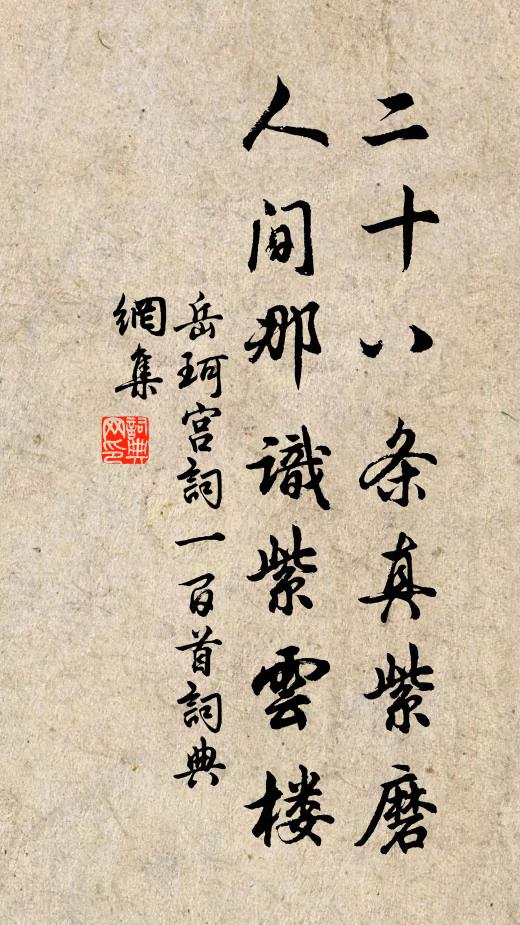 二十八条真紫磨
人间那識紫雲楼
岳珂宫詞一百首詞典
網集
詞典網印